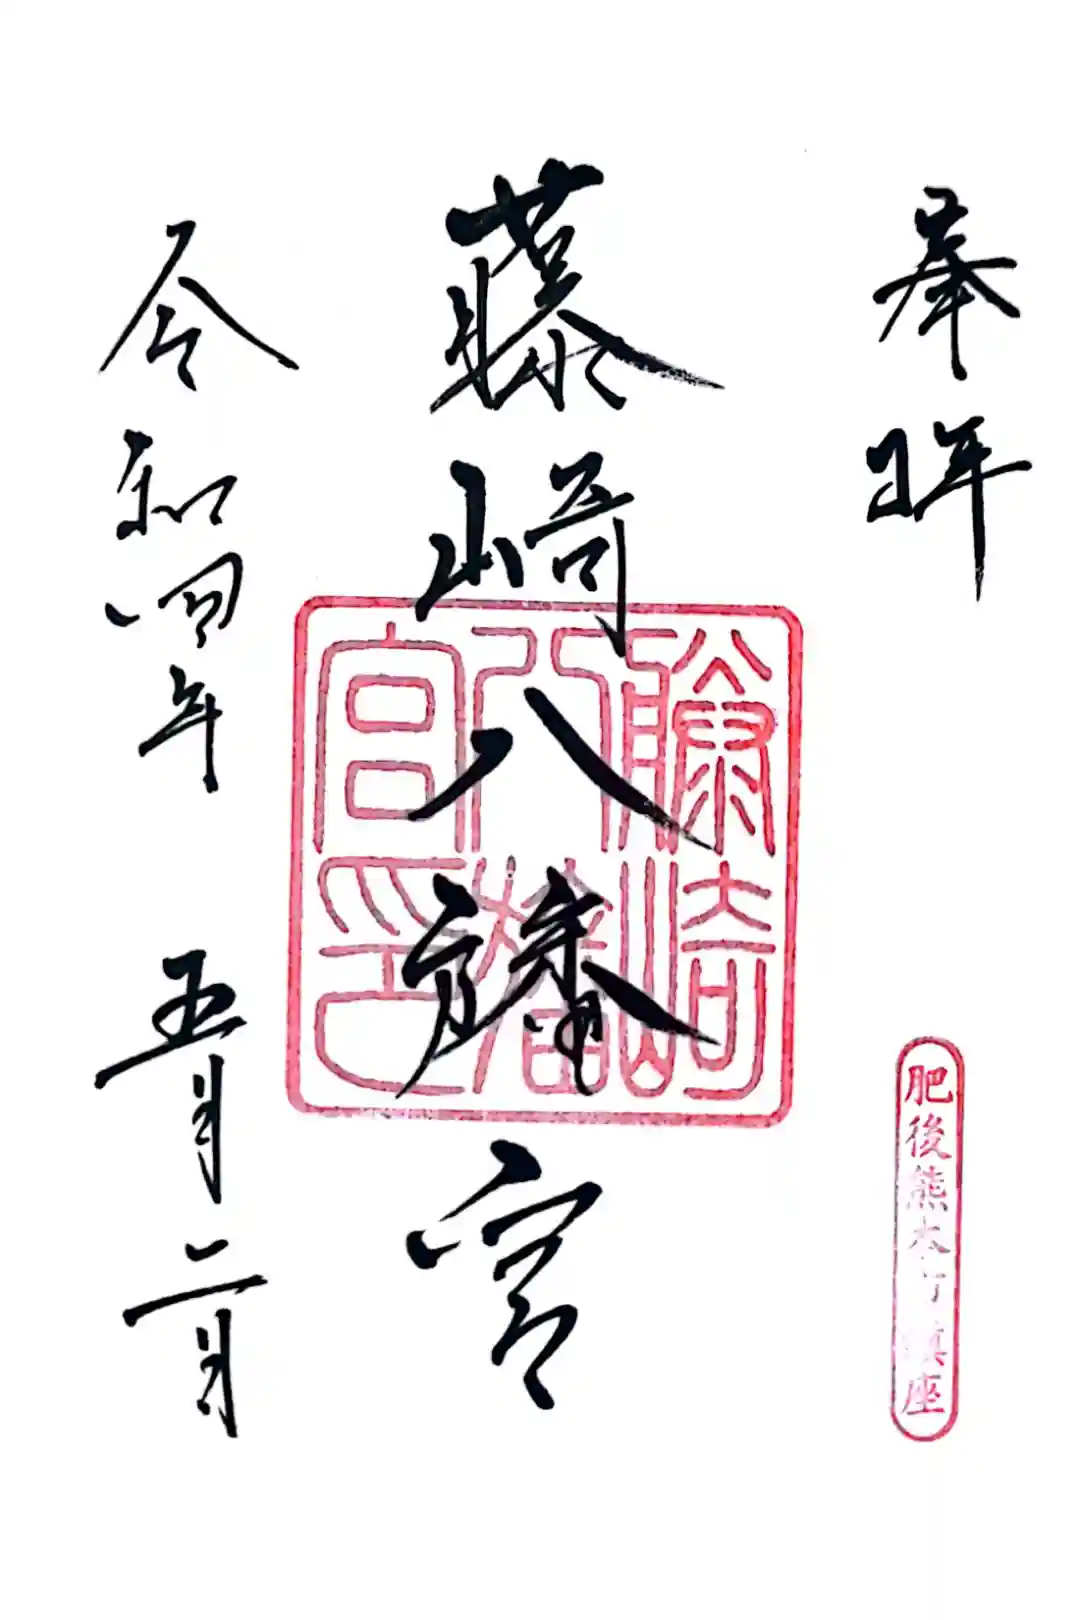 奉拝
肥後熊本鎮座
藤崎八旛宮
藤崎
八旛
宮印
令和四年 五月二日